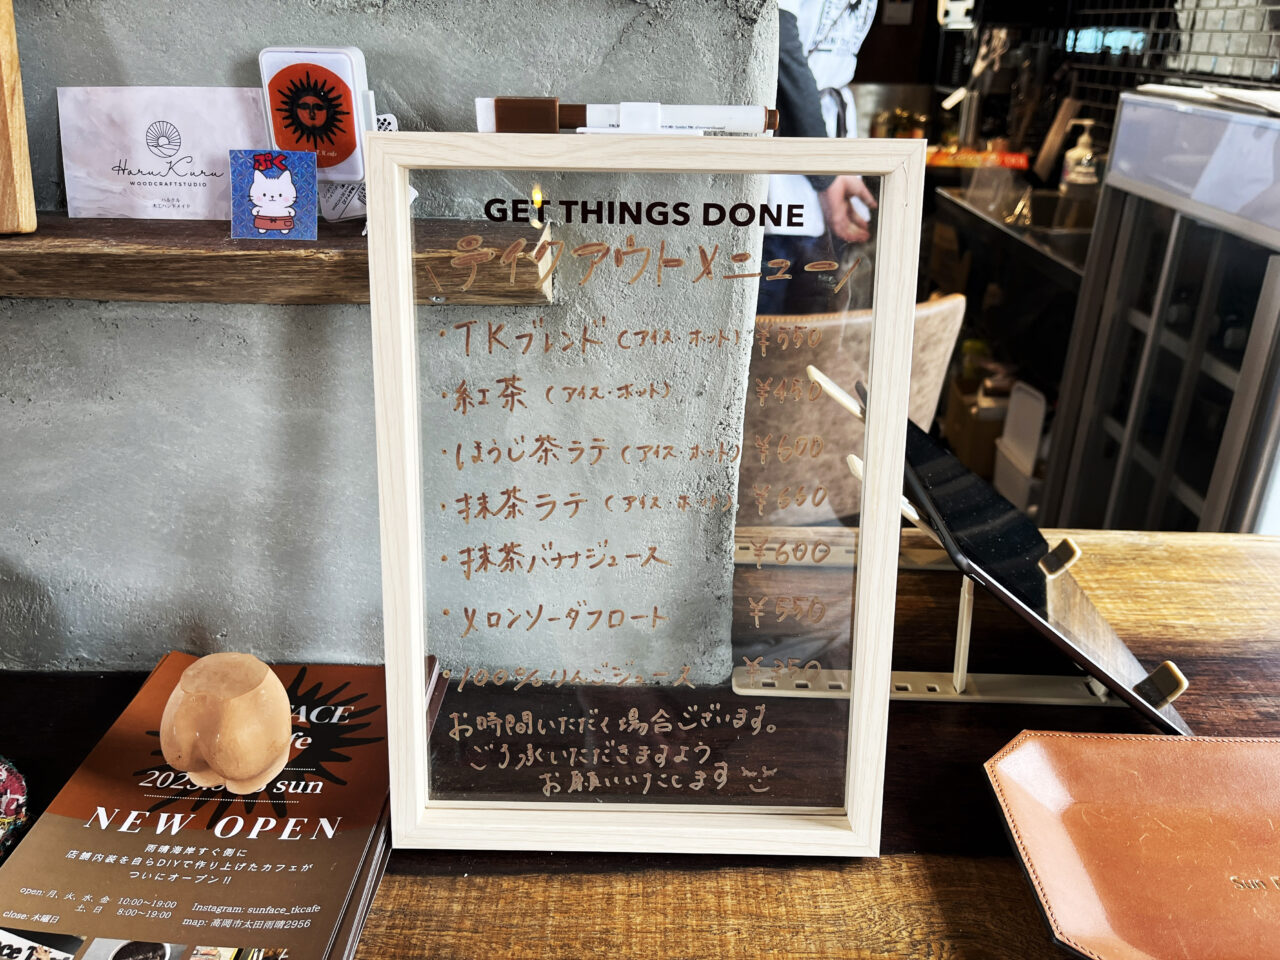 Haru Kuru
WOODCRAFTSTUDIO
ハルクル
木工ハンドメイド
ぷく
GET THINGS DONE
テイクアウトメニュー
・TKブレンド(アイス・ホット) ¥550
・紅茶(アイス・ホット) ¥480
・ほうじ茶ラテ(アイス・ホット) ¥600
・抹茶ラテ(アイス・ホット) ¥650
・抹茶バナナジュース ¥600
・メロンソーダフロート ¥550
・100%りんごジュース ¥350
お時間いただく場合ございます。
ご了承いただきますよう
お願いいたします
FACE
fe
sun
NEW OPEN
雨晴海岸すぐ側に
店舗内装を自らDIYで作り上げたカフェが
ついにオープン!!
open: 月、火、水、金 10:00~19:00
土、日 8:00~19:00
close: 木曜日
Instagram: sunface_tkcafe
map: 高岡市太田雨晴2956
Sun